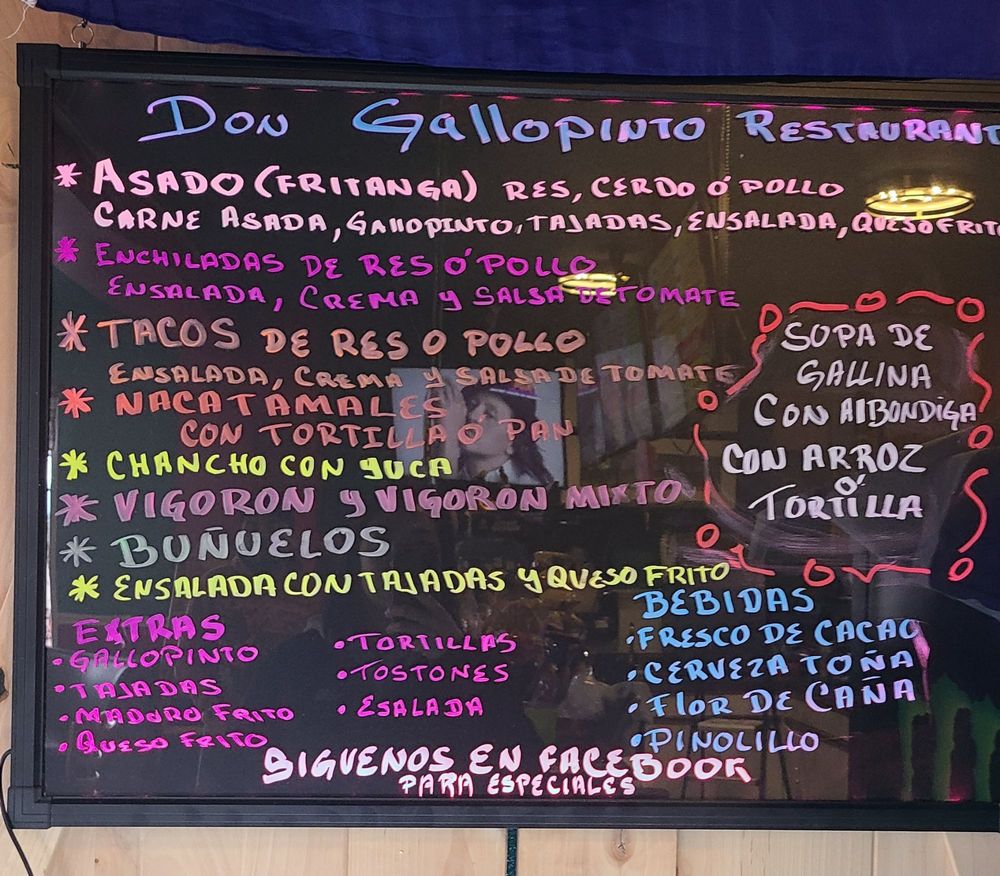 DON GALLOPINTO RESTAURANT
* ASADO (FRITANGA) RES, CERDO Ó POLLO
CARNE ASADA, GALLOPINTO, TAJADAS, ENSALADA, QUESO FRITO
* ENCHILADAS DE RES Ó POLLO
ENSALADA, CREMA Y SALSA DE TOMATE
* TACOS DE RES O POLLO
ENSALADA, CREMA Y SALSA DE TOMATE
* NACATAMALES
CON TORTILLA Ó PAN
* CHANCHO CON YUCA
* VIGORON Y VIGORON MIXTO
* BUÑUELOS
* ENSALADA CON TAJADAS Y QUESO FRITO
SOPA DE
GALLINA
CON AlBONDIGA
CON ARROZ
Ó
TORTILLA
EXTRAS
• GALLOPINTO
• TAJADAS
• MADURO FRITO
• QUESO FRITO
• TORTILLAS
• TOSTONES
• ESALADA
BEBIDAS
• FRESCO DE CACAO
• CERVEZA TOÑA
• FLOR DE CAÑA
• PINOLILLO
SIGUENOS EN FACEBOOK
PARA ESPECIALES